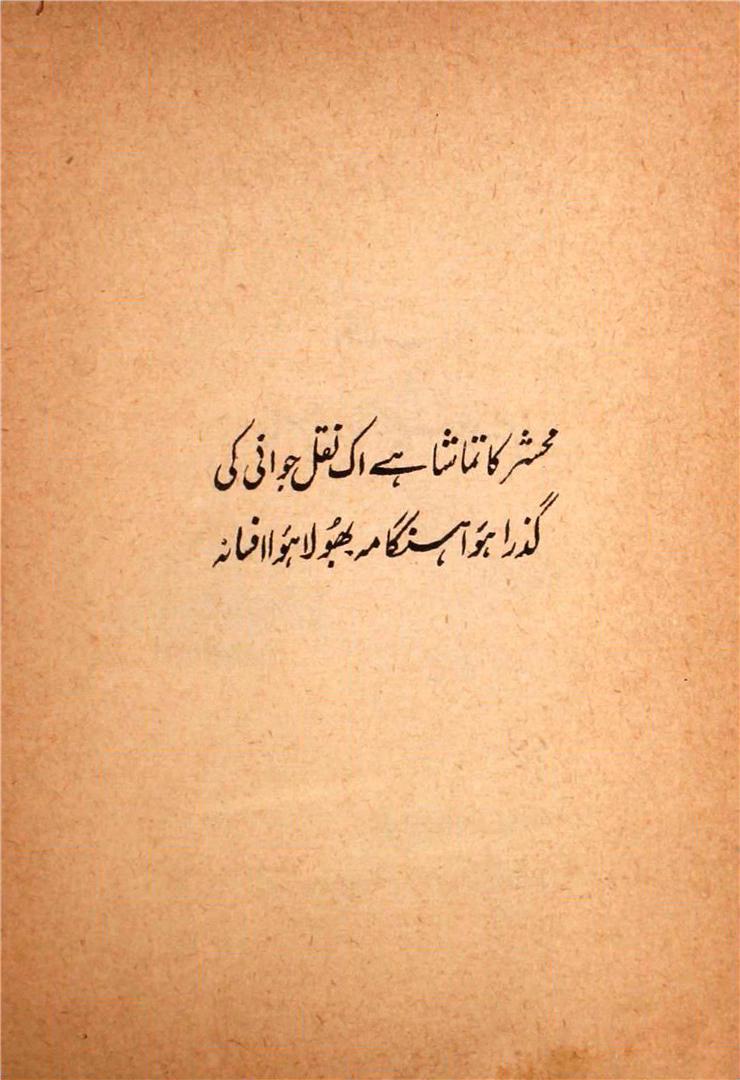 محشر کا تماشا ہے اک نقل جوانی کی
گذرا ہؤا ہنگامہ بھُولا ہؤا افسانہ